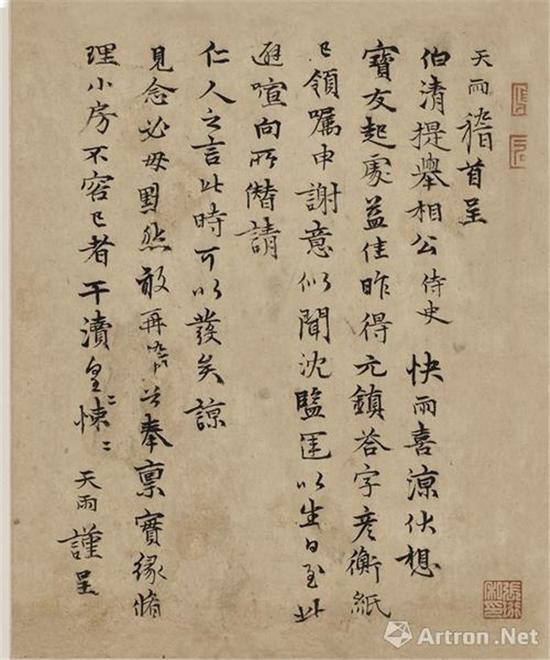 天雨稽首呈
伯清提舉相公侍史 快雨喜凉伏想
寶友起處益佳昨得元鎮荅字彦衡紙
已領囑申謝意似聞沈監以生日至此
避喧向所僭請
仁人之言此時可以發矣諒
見念必毋默然敢再稽首奉稟實緣脩
理小房不容已者干瀆皇〻悚〻 天雨謹呈
張珩私印
Artron.Net